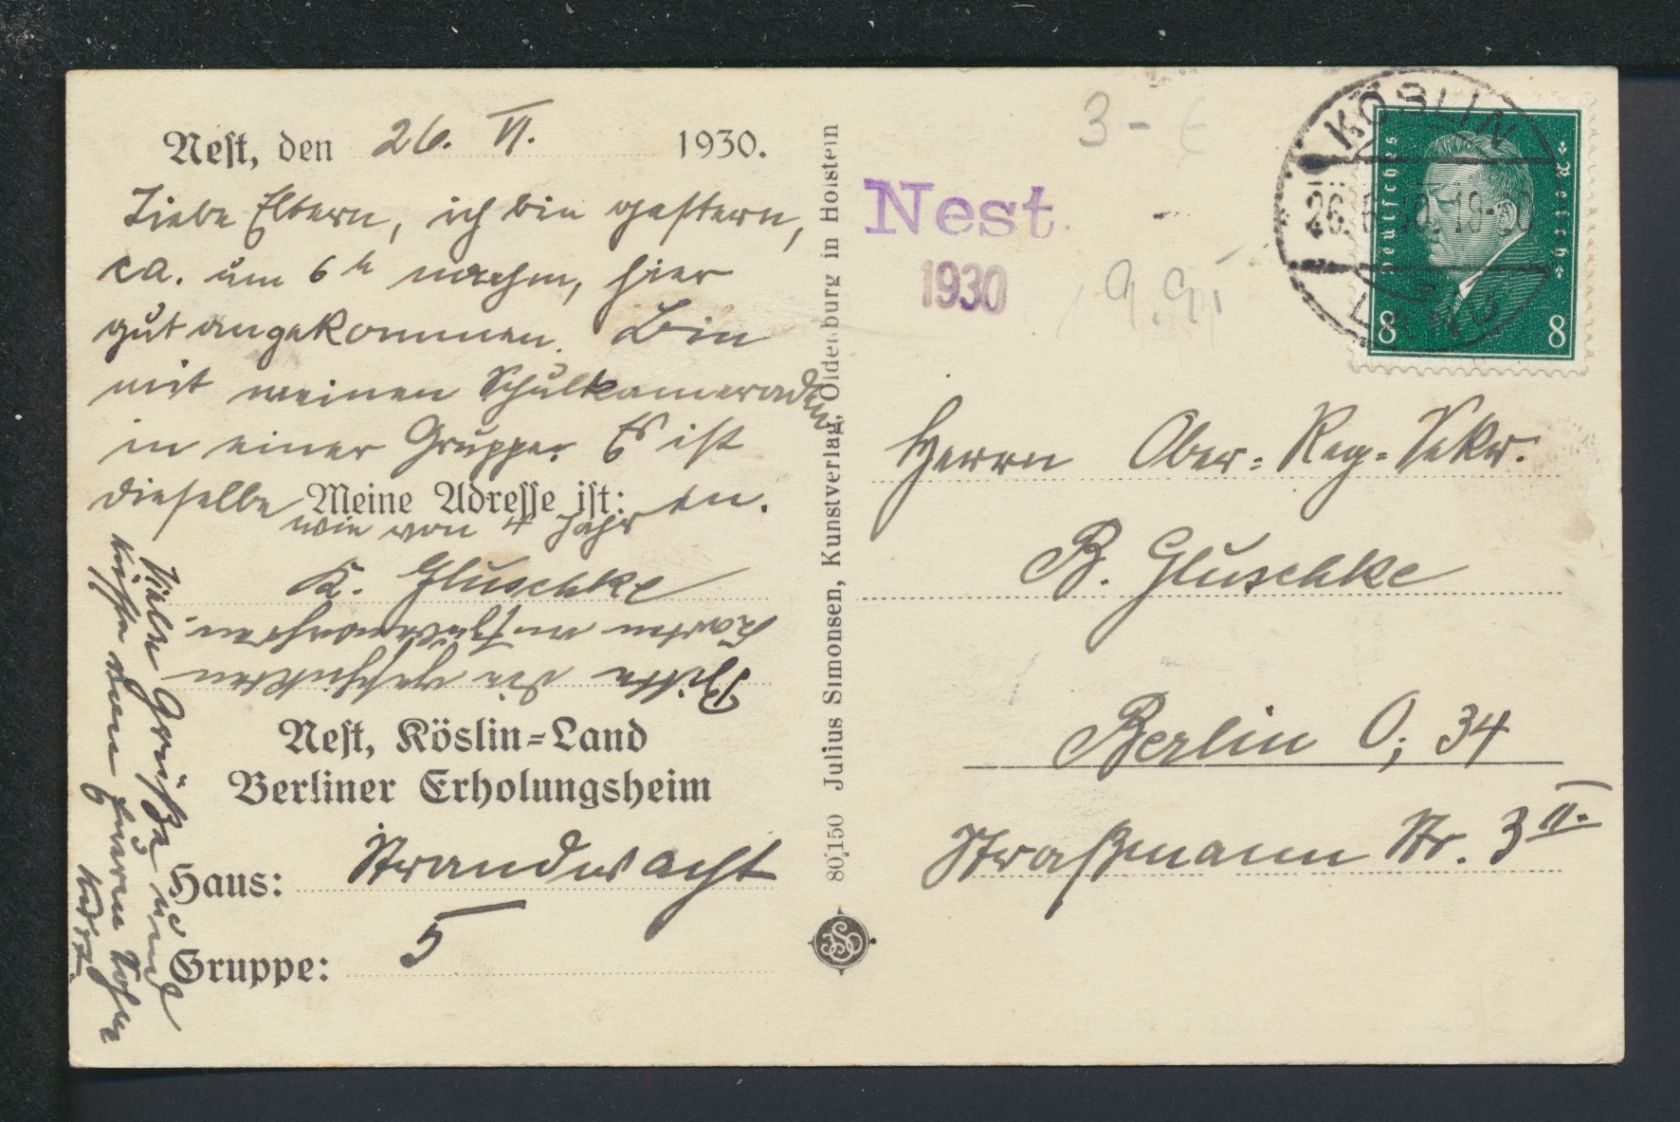 Nest, den 26. VI. 1930.
Liebe Eltern, ich bin gestern,
ca. um 6 h nachm, hier
gut angekommen. Bin
mit meinen Schulkameraden
in einer Gruppe. Es ist
dieselbe
Meine Adresse ist:
wie von 4 Jahr en.
K. Gluschke
Bitte die geschickten
Karten aufzubewahren.
Nest, Köslin-Land
Berliner Erholungsheim
Haus: Strandwacht
Gruppe: 5
Viele Grüße und
Küsse von Eurem Sohn
Kurt.
80,150 Julius Simonsen, Kunstverlag, Oldenburg in Holstein
Nest
1930
3 - €
KÖSLIN
26.6.30.18-20
LAND
Deutsches Reich
8 8
Herrn Ober-Reg-Sekr.
B. Gluschke
Berlin O, 34
Straßmann Str. 3 II.